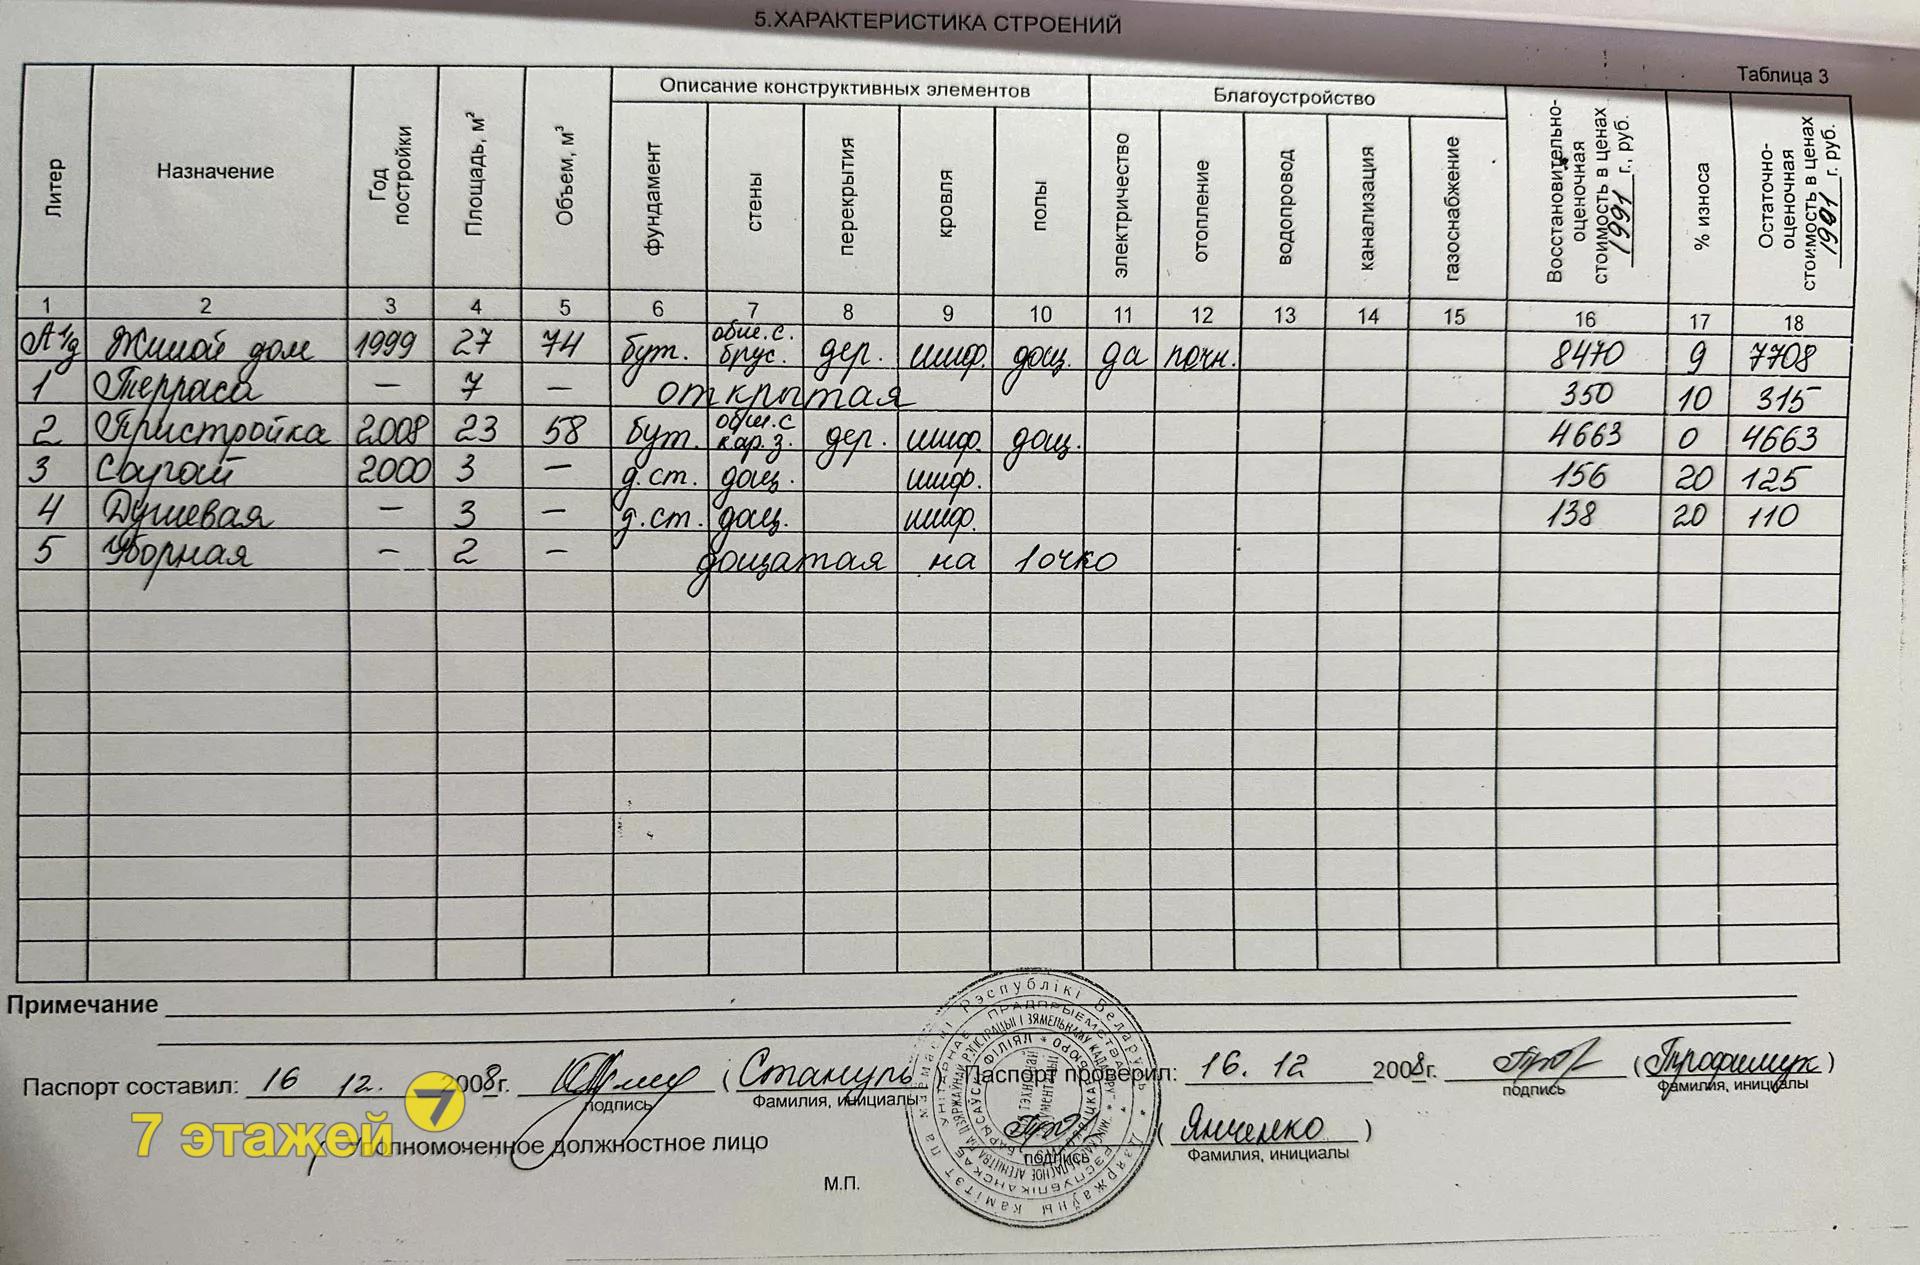 5.ХАРАКТЕРИСТИКА СТРОЕНИЙ
Таблица 3
Литер Назначение Год постройки Площадь, м² Объем, м³ Описание конструктивных элементов Благоустройство Восстановительно-оценочная стоимость в ценах 1991 г., руб. % износа Остаточно-оценочная стоимость в ценах 1991 г. руб.
фундамент стены перекрытия кровля полы электричество отопление водопровод канализация газоснабжение
1 2 3 4 5 6 7 8 9 10 11 12 13 14 15 16 17 18
А 1/д Жилой дом 1999 27 74 бут. обш.с. брус. дер. шиф. дощ. да печн. 8470 9 7708
1 Терраса — 7 — открытая 350 10 315
2 Пристройка 2008 23 58 бут. обш.с кар.з. дер. шиф. дощ. 4663 0 4663
3 Сарай 2000 3 — д.ст. дощ. шиф. 156 20 125
4 Душевая — 3 — д.ст. дощ. шиф. 138 20 110
5 Уборная — 2 — дощатая на 1 очко
Примечание
Паспорт составил: 16 12. 2008г. ( Стануль
подпись Фамилия, инициалы
Паспорт проверил: 16. 12 2008г. (Трофимук)
подпись Фамилия, инициалы
7 этажей 7
Уполномоченное должностное лицо ( Янченко )
подпись Фамилия, инициалы
М.П.
Рэспублікі Беларусь